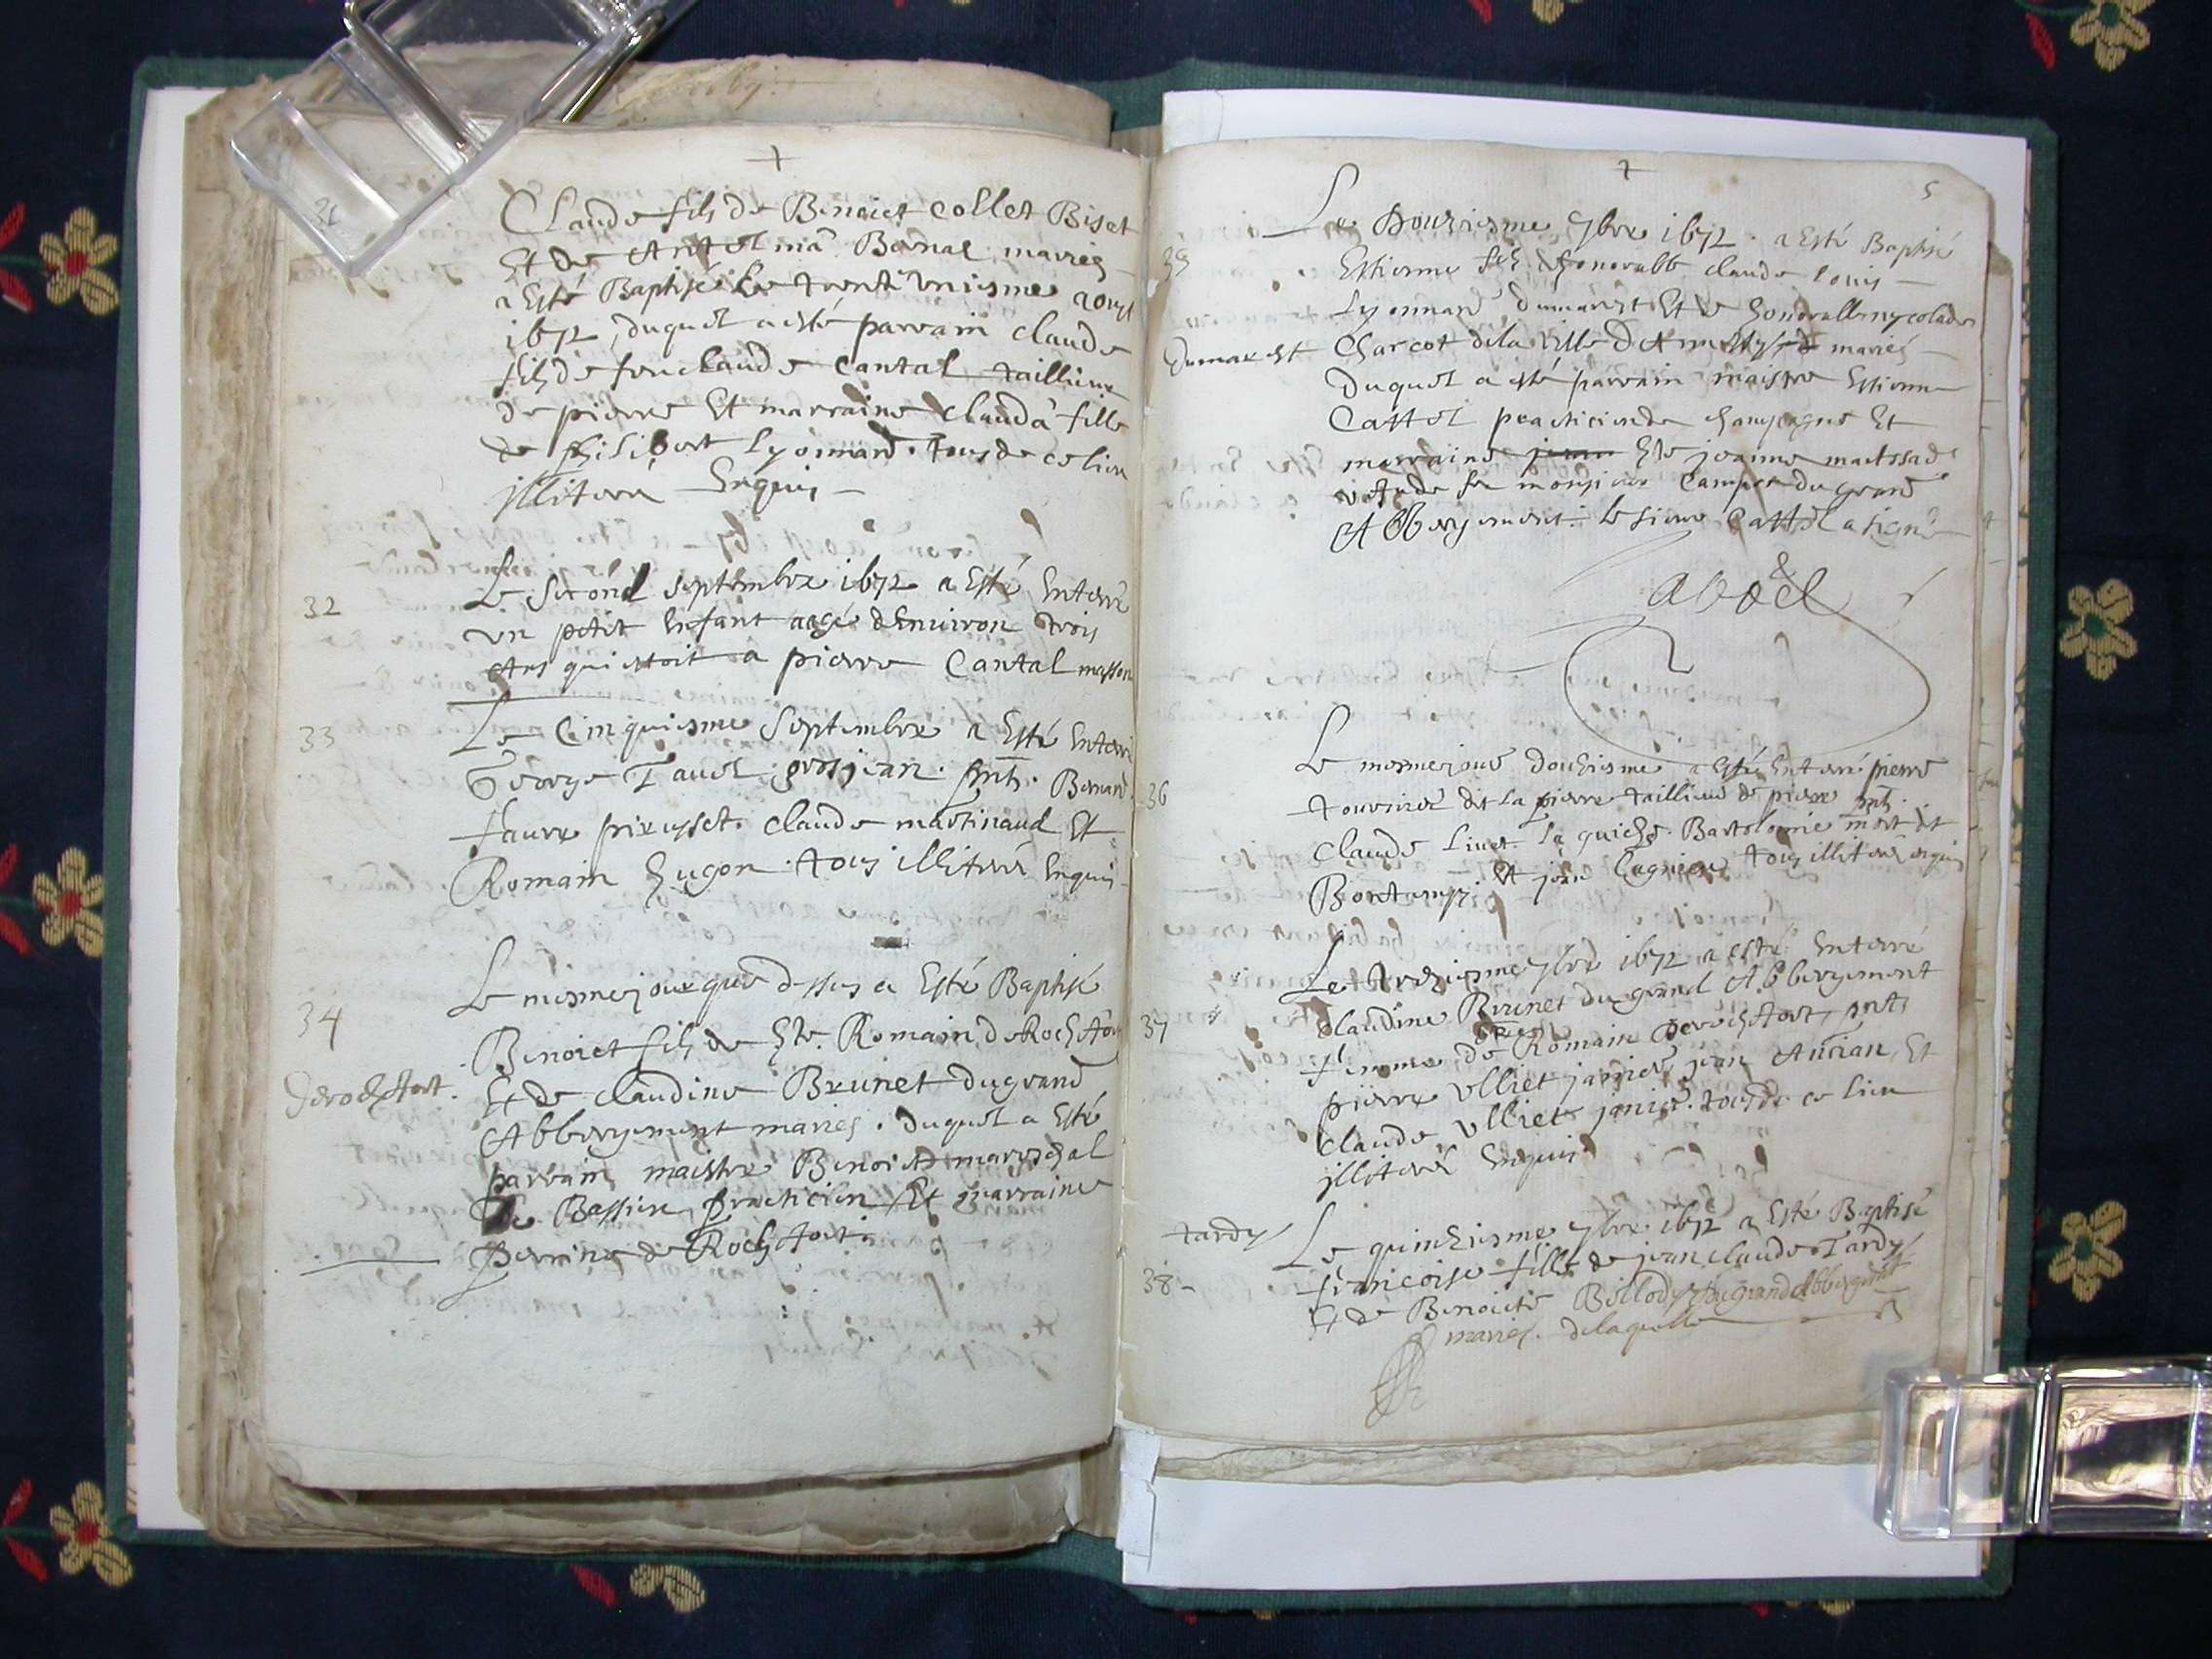 31
Claude filz de Benoict Collet Biset
Et de Antoima Bernal mariés
a Esté Baptisé Le trent'uniesme aoust
1672, duquel a esté parrain claude
filz de feu claude Cantal taillieur
de pierre Et marraine Clauda fille
de philibert Lyonnard tous de ce lieu
illiterez Enquis
32
Le Second septembre 1672 a Esté Enterré
un petit Enfant aagé d'Environ trois
Ans qui estoit a pierre Cantal masson
33
Le Cinquiesme Septembre a Esté Enterré
George Tavel grosjean. pnts. Bernard
faure claude martinaud Et
Romain hugon tous illiterés Enquis
34
Le mesme jour que dessus a Esté Baptisé
Benoict filz de hble. Romain de Rochfort
Derochfort.
Et de claudine Brunet du grand
Abbergement mariés. duquel a Esté
parrain maistre Benoict mareschal
de Bassieu practicien Et marraine
perrine de Rochfort
5
Le Douziesme 7bre 1672. a Esté Baptisé
35
Estienne filz d'honorable claude louis
Lyonnard dumarest Et de honorable nycolade
dumarest
Charcot de la Ville de mariés
Duquel a esté parrain maistre Estienne
Cattel practicien de champagne Et
marraine hble jeanne
vefve de feu monsieur Camper du grand
Abbergement. le sieur Cattel a signé
Le mesme jour douziesme a esté Enterré pierre
36
tournier dit la pierre taillieur de pierre pnts.
Claude Livet la quiche. Bartolomie mort dit
Bontemps Et jean Cagnieu tous illiterés enquis
Le treziesme 7bre 1672 a esté Enterré
37
claudine Brunet du grand Abbergement
femme de Romain Derochfort, pnts
pierre Ulliet janier jean Ancian Et
claude Ulliet janier. tous de ce lieu
illiterés Enquis
tardy
Le quinziesme 7bre 1672 a Esté Baptisé
38
francoise fille de jean claude Tardy
Et de Benoicte du grand Abbergemt
mariés. de laquelle